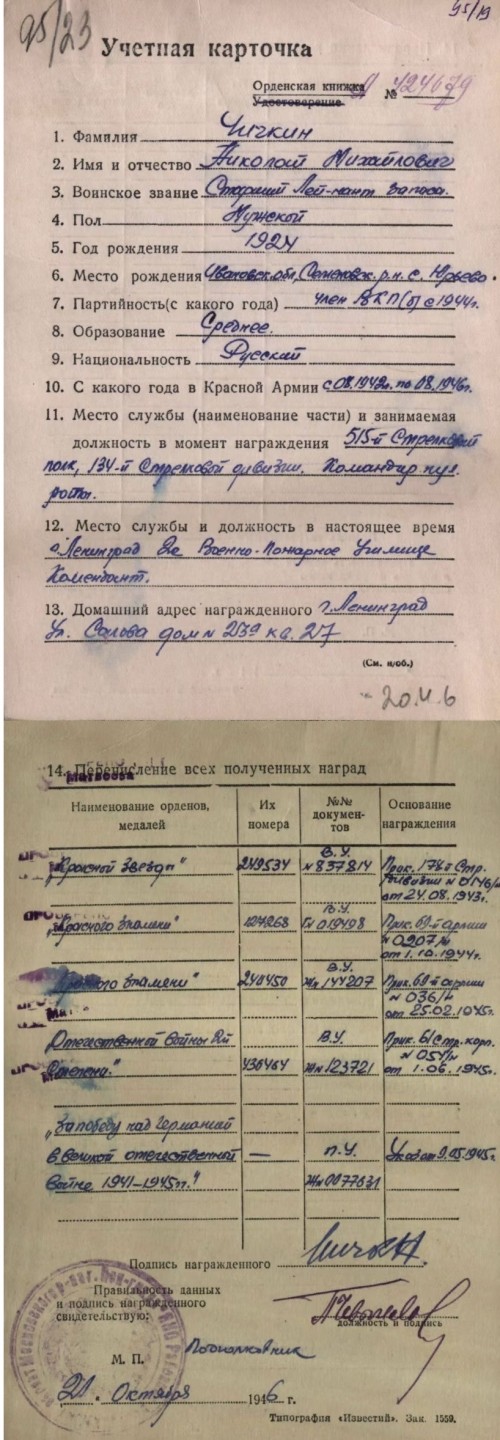 95/23
95/19
Учетная карточка
Орденская книжка
Удостоверение
А № 424679
1. Фамилия Чичкин
2. Имя и отчество Николай Михайлович
3. Воинское звание Старший Лей-нант запаса.
4. Пол Мужской
5. Год рождения 1924
6. Место рождения Ивановск. обл, р.н. с. Юрьево.
7. Партийность (с какого года) член ВКП(б) с 1944г.
8. Образование Среднее.
9. Национальность Русский
10. С какого года в Красной Армии с 08.1942г. по 08.1946г.
11. Место службы (наименование части) и занимаемая
должность в момент награждения 515-й Стрелковый
полк, 134-й Стрелковой дивизии. Командир пул.
роты.
12. Место службы и должность в настоящее время
г. Ленинград 2е Военно-Пожарное Училище
Комендант.
13. Домашний адрес награжденного г. Ленинград
Ул. дом № 239 кв. 27
(См. н/об.)
20.4.6
14. Перечисление всех полученных наград
Матвеева
Наименование орденов, медалей
Их номера
№№ документов
Основание награждения
„Красной Звезды" 249534 В.У. №837814 Прик. 174й Стр. дивизии №0146/н от 24.08.1943г.
„Красного Знамени" 127268 В.У. Г№019498 Прик. 69-й армии №0207/н от 1.10.1944г.
„Красного Знамени" 240450 В.У. Ж№144207 Прик. 69-й армии №036/н от 25.02.1945г.
Отечественной Войны 2й
Степени." 436464 В.У. Ж№123721 Прик. 61 Стр. корп. №054/н от 1.06.1945г.
„За победу над Германией
в Великой отечественной — П.У. Указ от 9.05.1945г.
Войне 1941-1945гг." Ж№0077631
Подпись награжденного
Правильность данных
и подпись награжденного
свидетельствую:
должность и подпись
М. П.
Подполковник
21. Октября 1946 г.
Типография «Известий». Зак. 1559.